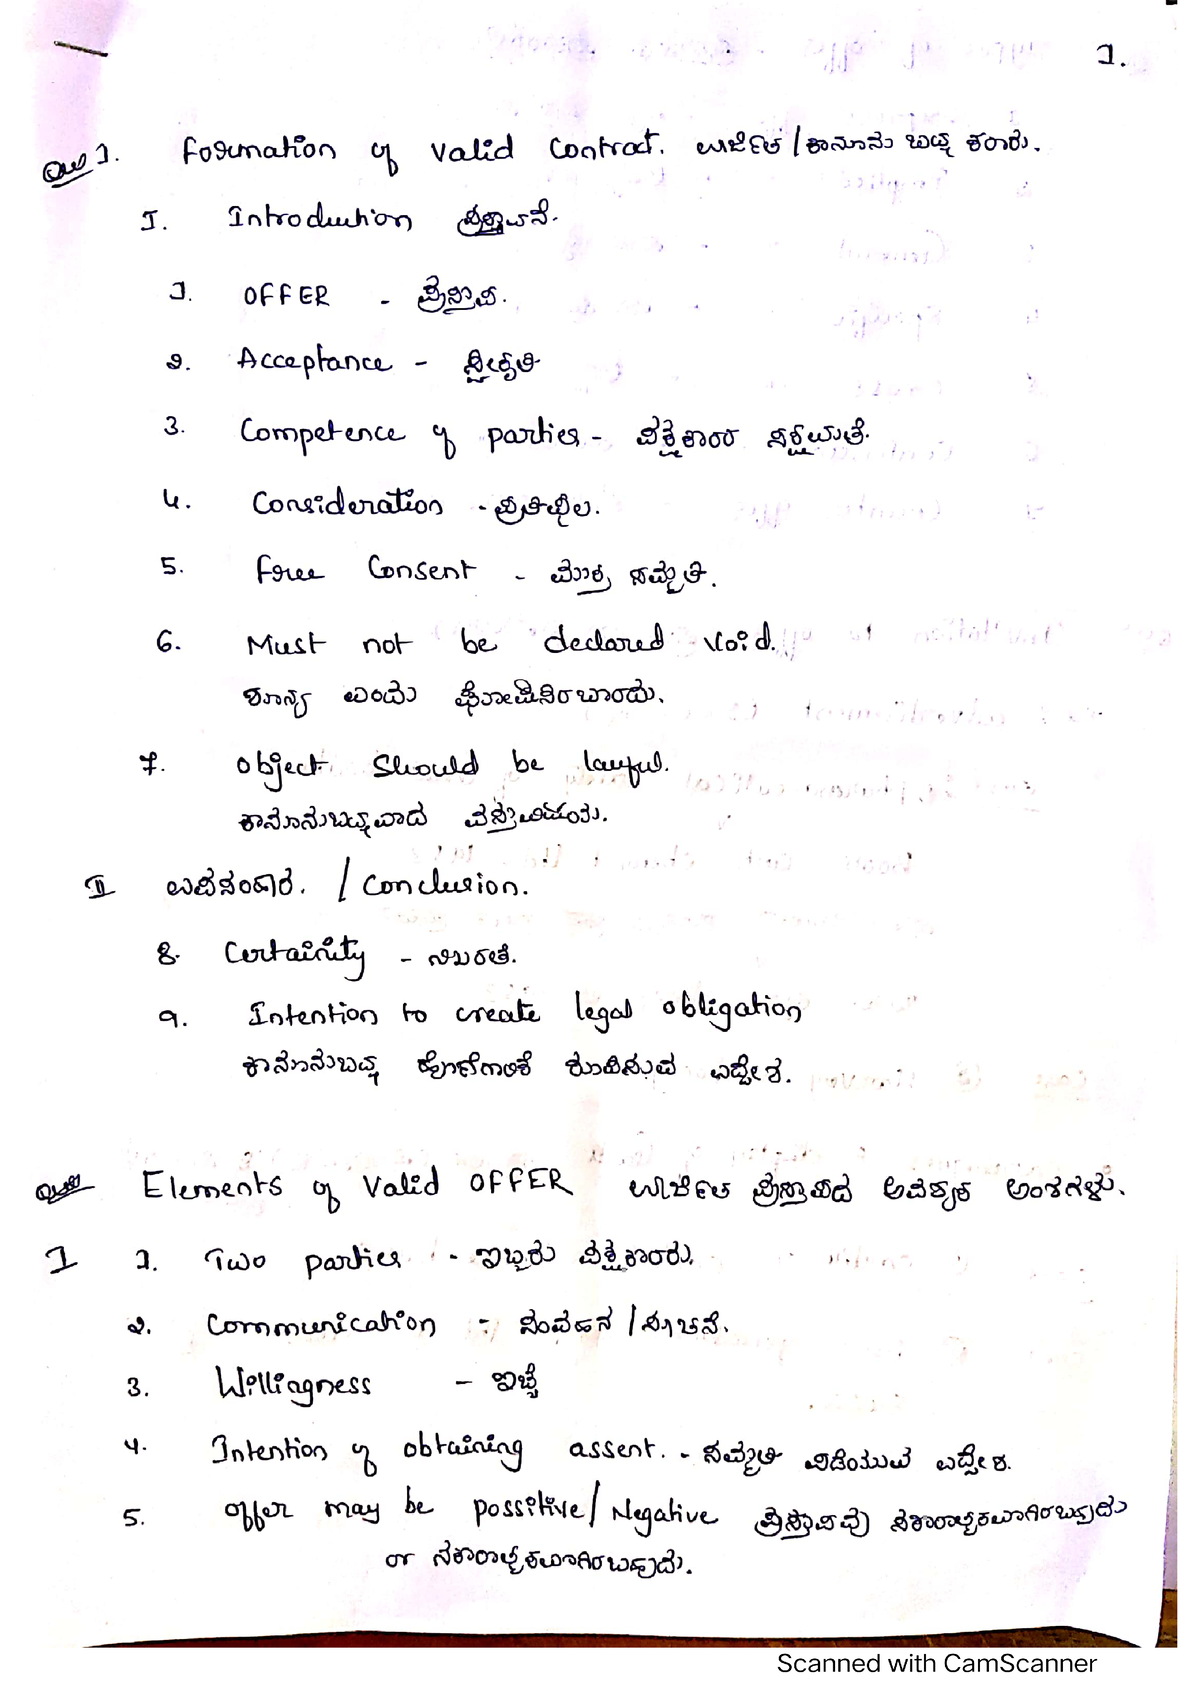 1.
Que 1. Formation of Valid Contract. ಊರ್ಜಿತ / ಕಾನೂನು ಬದ್ಧ ಕರಾರು.
I. Introduction ಪ್ರಸ್ತಾವನೆ.
1. OFFER - ಪ್ರಸ್ತಾವ.
2. Acceptance - ಸ್ವೀಕೃತಿ
3. Competence of parties - ಪಕ್ಷಕಾರರ
4. Consideration - ಪ್ರತಿಫಲ.
5. Free Consent - ಮುಕ್ತ ಸಮ್ಮತಿ.
6. Must not be declared Void.
ಶೂನ್ಯ ಎಂದು ಘೋಷಿಸಿರಬಾರದು.
7. Object should be lawful.
ಕಾನೂನುಬದ್ಧವಾದ
II ಉಪಸಂಹಾರ. / Conclusion.
8. Certainity - ನಿಖರತೆ.
9. Intention to create legal obligation
ಕಾನೂನುಬದ್ಧ ಹೊಣೆಗಾರಿಕೆ ರೂಪಿಸುವ ಉದ್ದೇಶ.
Que Elements of Valid OFFER ಊರ್ಜಿತ ಪ್ರಸ್ತಾವದ ಅವಶ್ಯಕ ಅಂಶಗಳು.
I 1. Two parties - ಇಬ್ಬರು ಪಕ್ಷಕಾರರು.
2. Communication - ಸಂವಹನ / ಸೂಚನೆ.
3. Willingness - ಇಚ್ಛೆ
4. Intention of obtaining assent. - ಸಮ್ಮತಿ ಪಡೆಯುವ ಉದ್ದೇಶ.
5. Offer may be possitive / Negative ಪ್ರಸ್ತಾವವು ಸಕಾರಾತ್ಮಕವಾಗಿರಬಹುದು
or ನಕಾರಾತ್ಮಕವಾಗಿರಬಹುದು.
Scanned with CamScanner